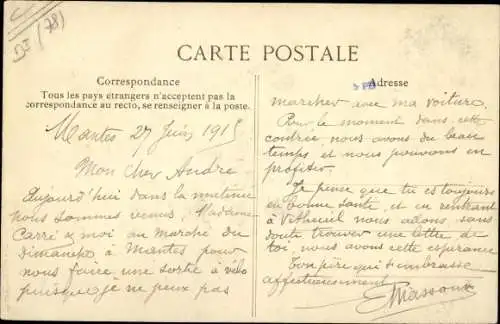 DI (78)
CARTE POSTALE
Correspondance
Tous les pays étrangers n'acceptent pas la
correspondance au recto, se renseigner à la poste.
Mantes 27 Juin 1915
Mon cher André
Aujourd'hui dans la matinée
nous sommes venus, Madame
Carré & moi au marché du
Dimanche à Mantes pour
nous faire une sortie à vélo
puisque je ne peux pas
Adresse
marcher avec ma voiture.
Pour le moment dans cette
contrée nous avons du beau
temps et nous pouvons en
profiter.
Je pense que tu es toujours
en bonne santé, et en rentrant
à Vétheuil nous allons, sans
doute trouver une lettre de
toi, nous avons cette espérance
Ton père qui t'embrasse
affectueusement